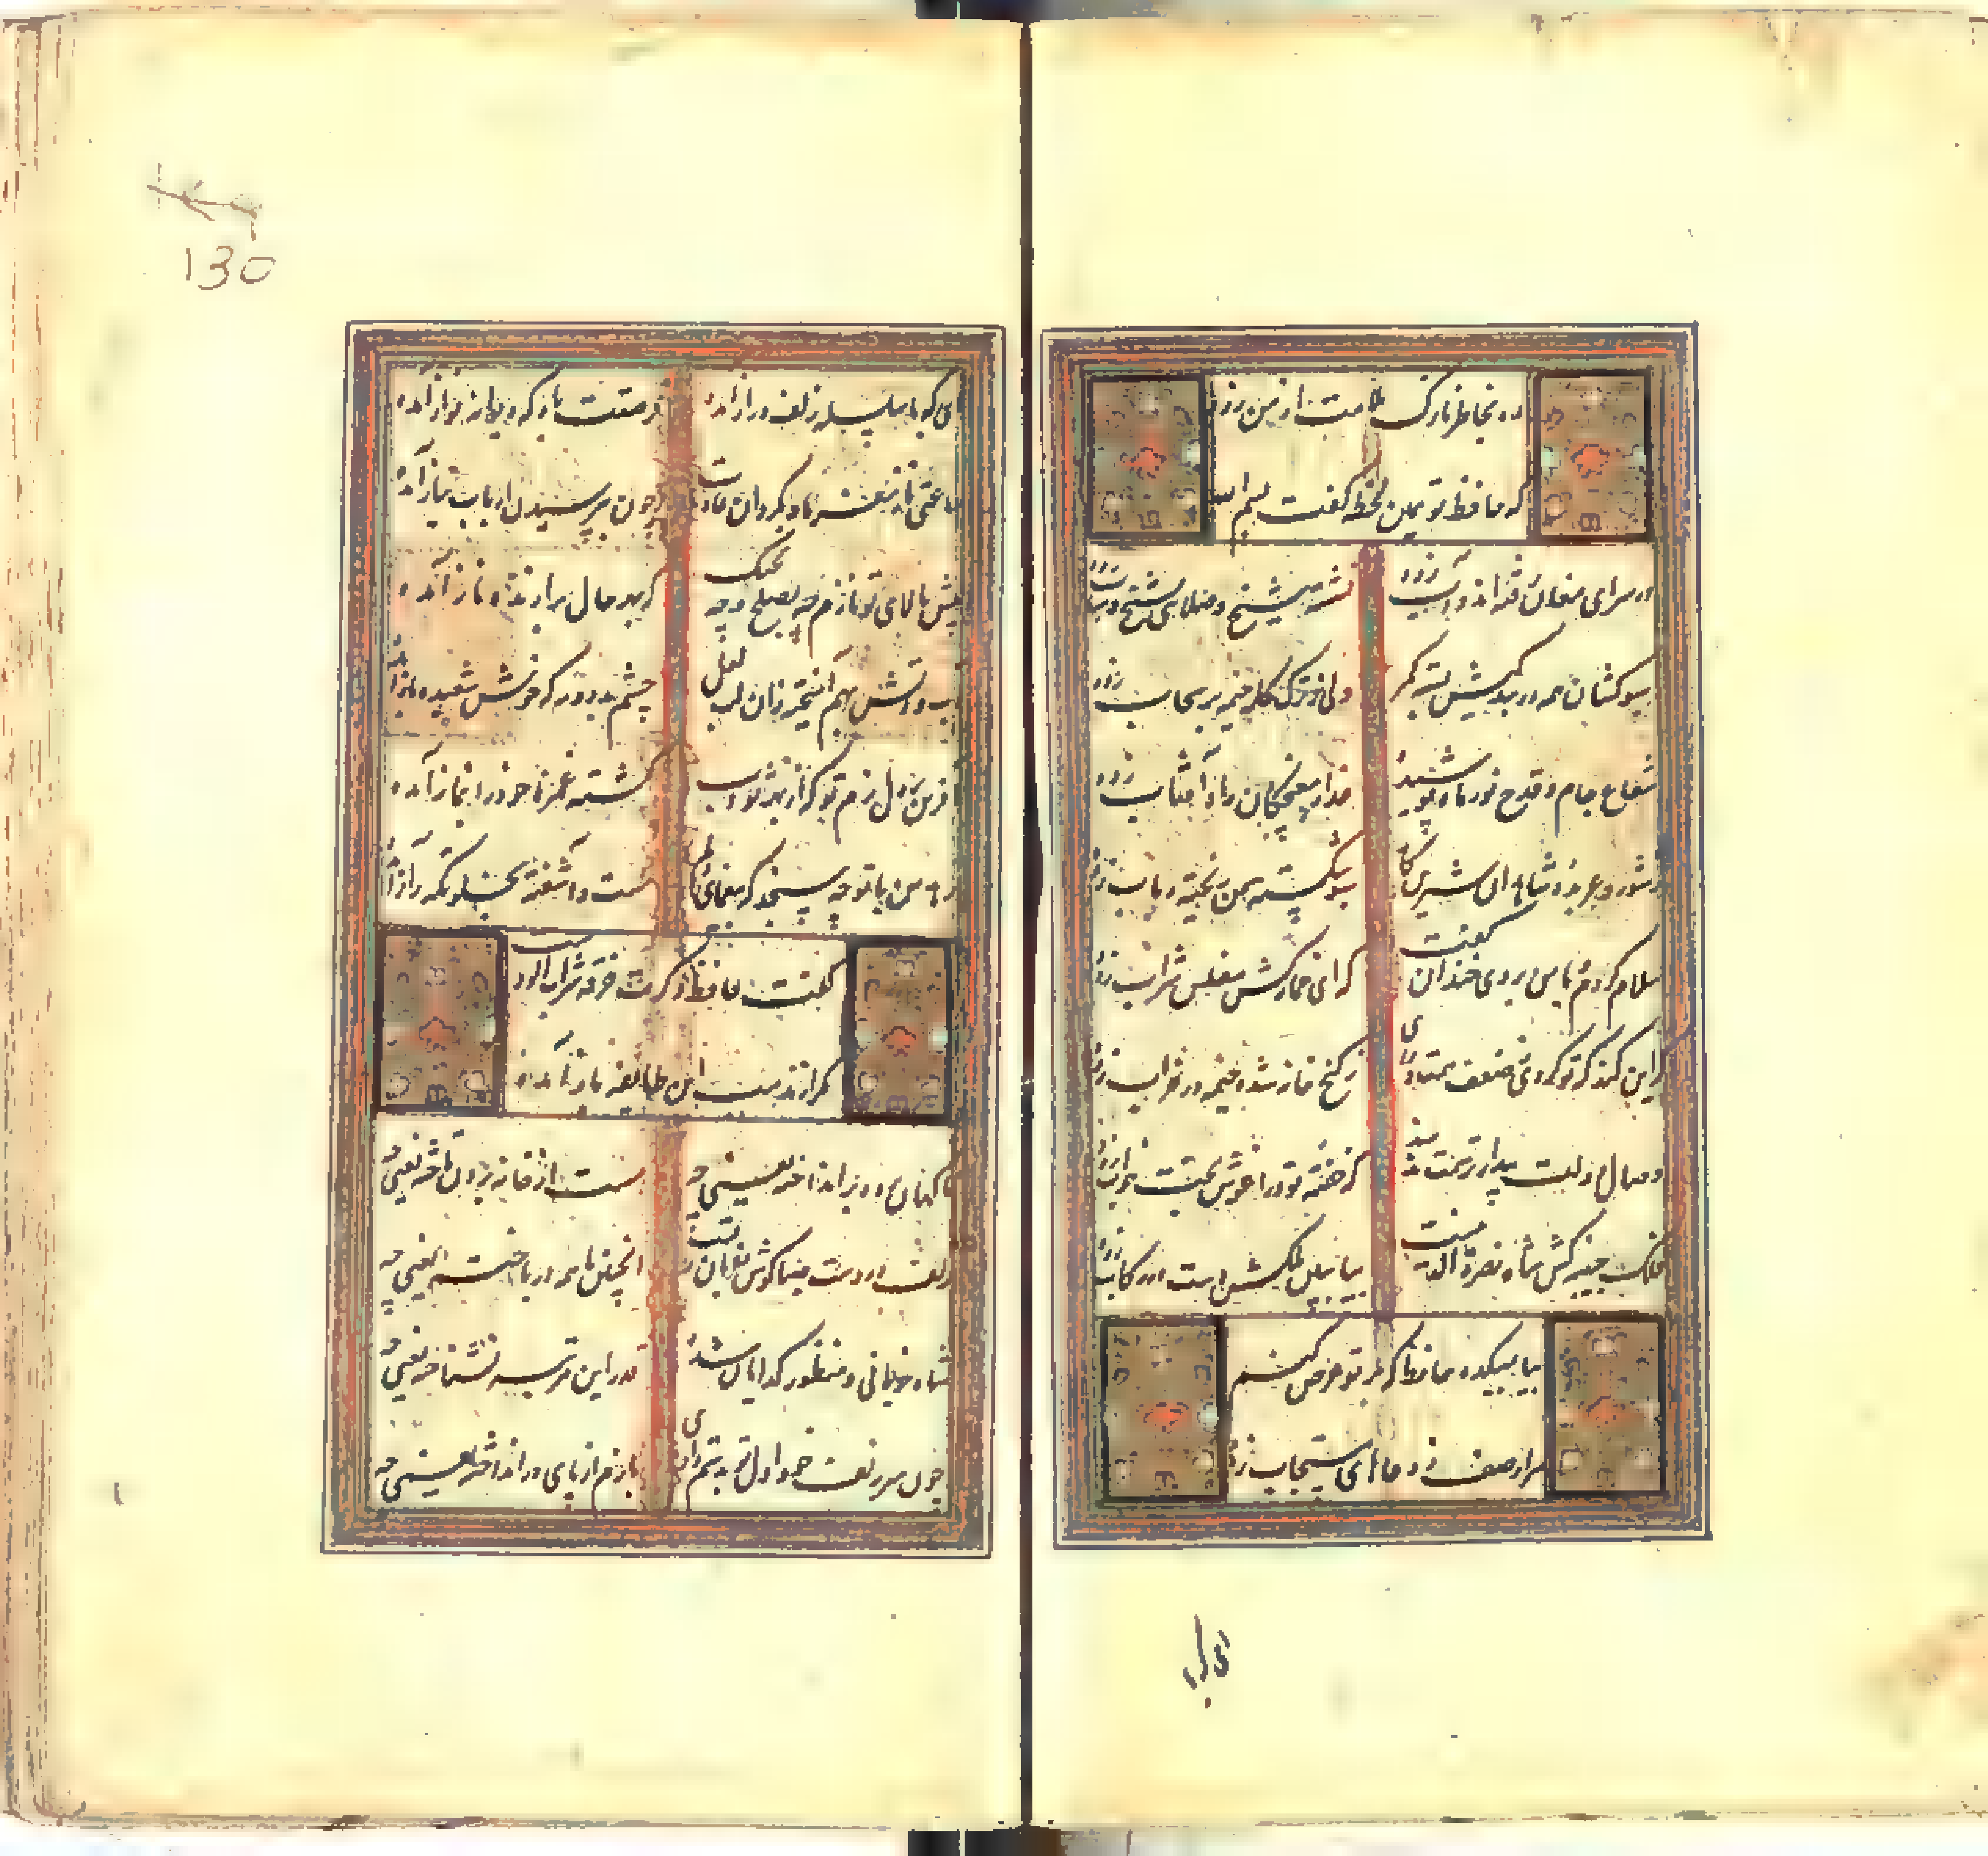 مده بخاطر نازک ملامت از من زود
که حافظ تو همین لحظه گفت بسم الله
در سرای مغان رفته اند و آب زده نشسته شیخ و صلای بشیخ و شاب زده
سبوکشان همه در بندگیش بسته کمر ولی ز ترک کله خیمه بر سحاب زده
شعاع جام و قدح نور ماه پوشیده عذار مغبچکان راه آفتاب زده
ز شور و عربده شاهدان شیرین کار شکسته سمن ریخته رباب زده
سلام کردم و با من بروی خندان گفت که ای خمارکش مفلس شراب زده
که این کند که تو کردی بضعف همت و رای ز کنج خانه شده خیمه در خراب زده
وصال دولت بیدار ترسمت ندهند که خفته تو در آغوش بخت خواب زده
فلک جنیبه کش شاه نصرة الدینست بیا ببین ملکش دست در رکاب زده
بیا بمیکده حافظ که بر تو عرض کنم
هزار صف ز دعاهای مستجاب زده
ای که با
130
ای که با سلسله زلف دراز آمده فرصتت باد که دیوانه نواز آمده
ساعتی ناز مفرما و بگردان عادت چون بپرسیدن ارباب نیاز آمده
پیش بالای تو نازم چه بصلح و چه بجنک که بهر حال برازنده ناز آمده
آب و آتش بهم آمیخته زان لب لعل چشم بد دور که خوش شعبده باز آمده
آفرین بر دل نرم تو که از بهر ثواب کشته غمزه خود را بنماز آمده
زهد من با تو چه سنجد که بیغمای دلم مست و آشفته بخلوتگه راز آمده
گفت حافظ دگرت خرقه شراب آلودست
مگر از مذهب این طایفه باز آمده
ناگهان پرده برانداخته یعنی چه مست از خانه برون تاخته یعنی چه
زلف در دست صبا گوش بفرمان رقیب اینچنین با همه در باخته یعنی چه
شاه خوبانی و منظور گدایان شده قدر این مرتبه نشناخته یعنی چه
چون سر زلف خود اول تو بدستم دادی بازم از پای در انداخته یعنی چه